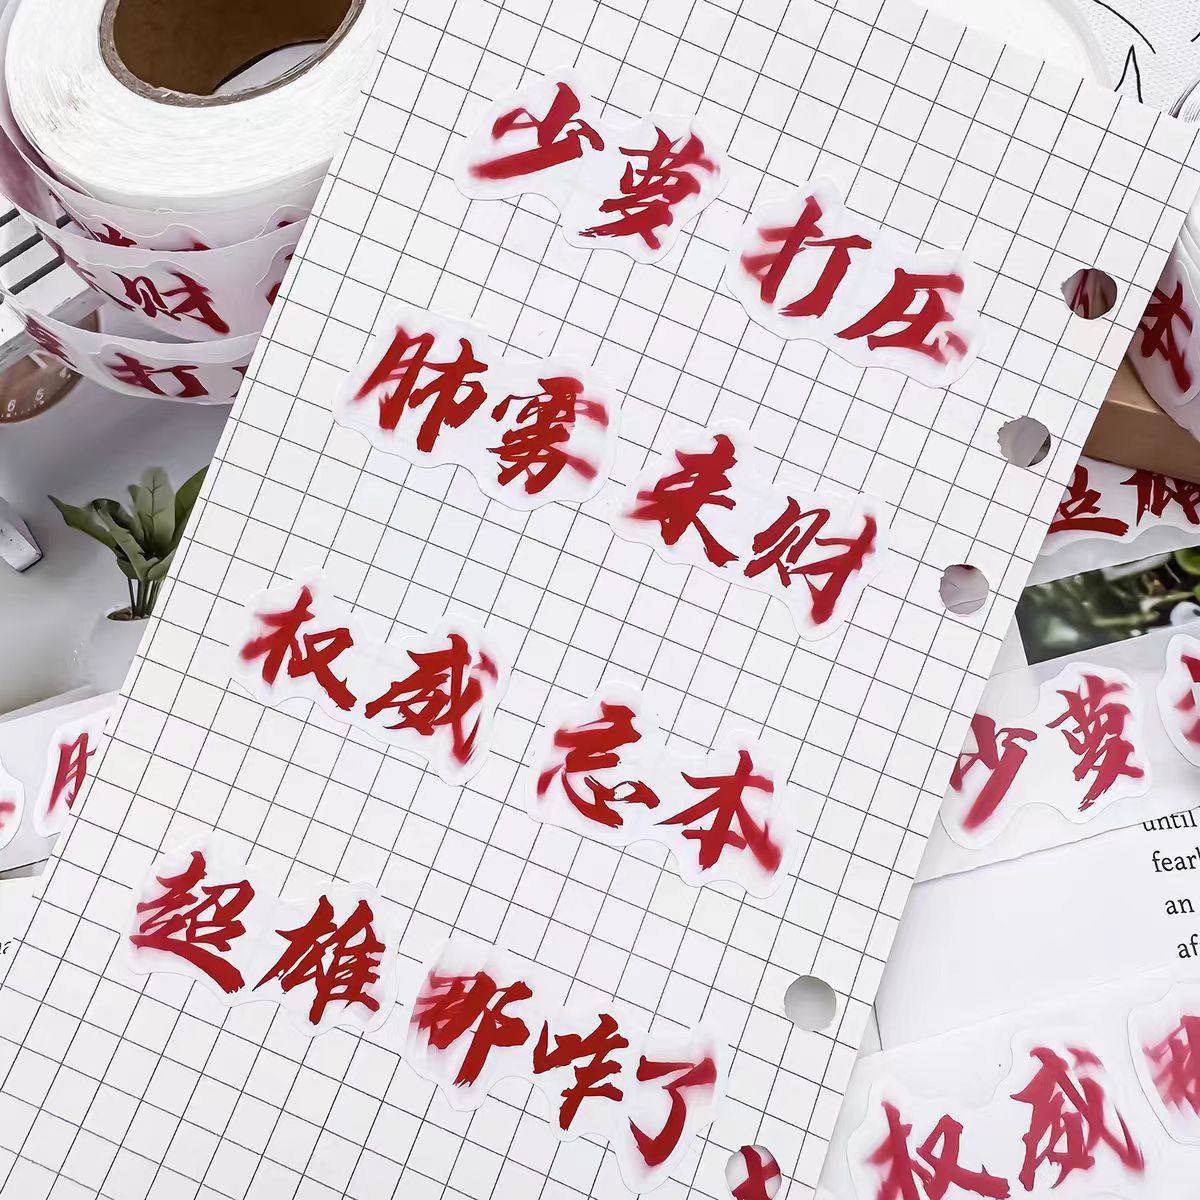 少萝 打压
肺雾 来财
权威 忘本
超雄 那咋了
财
打
6 5
本
超雄
少萝
until
fear
an
af
权威